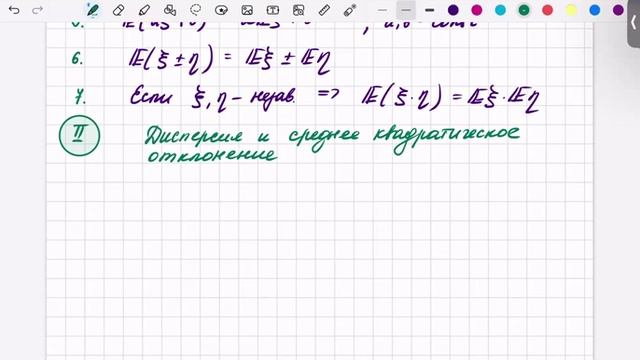 6. 𝔼(ξ ± η) = 𝔼ξ ± 𝔼η
7. Если ξ, η - незав. => 𝔼(ξ · η) = 𝔼ξ · 𝔼η
II Дисперсия и среднее квадратическое
отклонение